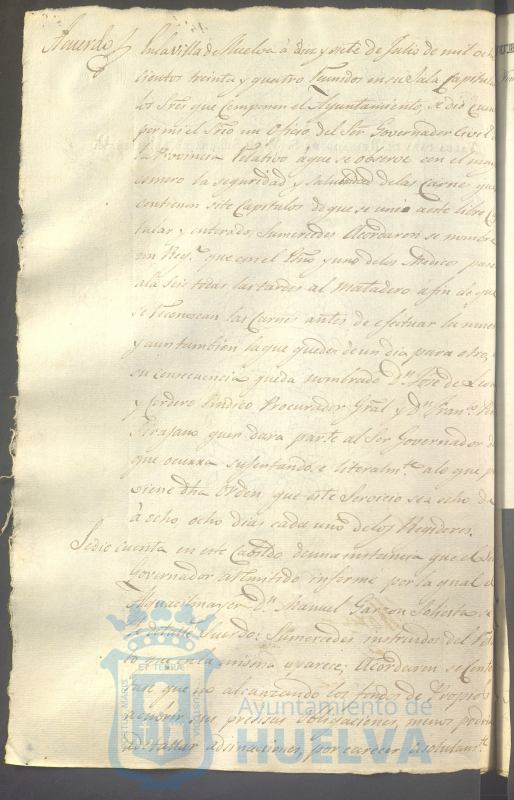 Acuerdo En la villa de Huelva à diez y siete de Julio de mil ocho
cientos treinta y quatro Reunidos en su Sala Capitular
los Sres que componen el Ayuntamiento, se dió cuenta
por mi el Srio un Oficio del Sor Governador Civil de
la Provincia relativo à que se observe con el mayor
esmero la seguridad y salubridad de las Carnes que
contienen siete Capitulos de que se unio a este libro
y enterados Sumercedes Acordaron se nombre
un Rexr que con el Srio y uno de los Medicos pase
a las seis todas las tardes al Matadero a fin de que
se reconoscan las Carnes antes de efetuar la
y aun tambien la que quede de un dia para otro,
su consecuencia queda nombrado Dn José de
y Cordero Sindico Procurador Gral y Dn Franco
quen dara parte al Sor Governador de
que ocurra sugentandose literalmte a lo que
viene dha Orden que este Servicio sea echo de
à ocho ocho dias cada uno de los Regidores.
Se dio cuenta en este Cabildo de una instancia que el Sor
Governador à informe por la qual el
Alguacil mayor Dn Manuel Garzon Solicita se
Sueldo: Sumercedes instruidos del
to que en la misma aparece; Acordaron se
que no alcanzando los fondos de Propios
à cubrir sus precisas obligaciones, menos podra
por carecer absolutamte
PORTUS MARIS ET TERRÆ CUSTODIA
Ayuntamiento de
HUELVA